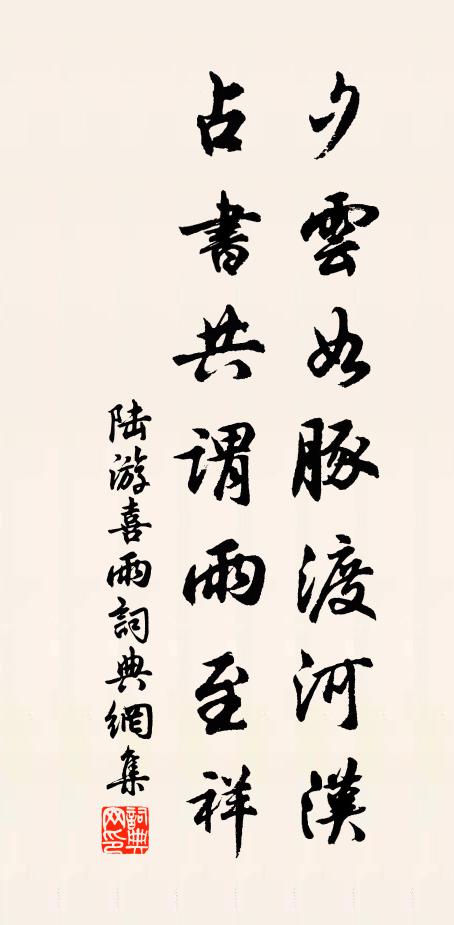 夕雲如豚渡河漢
占書共謂雨至祥
陆游喜雨詞典網集
詞典網印